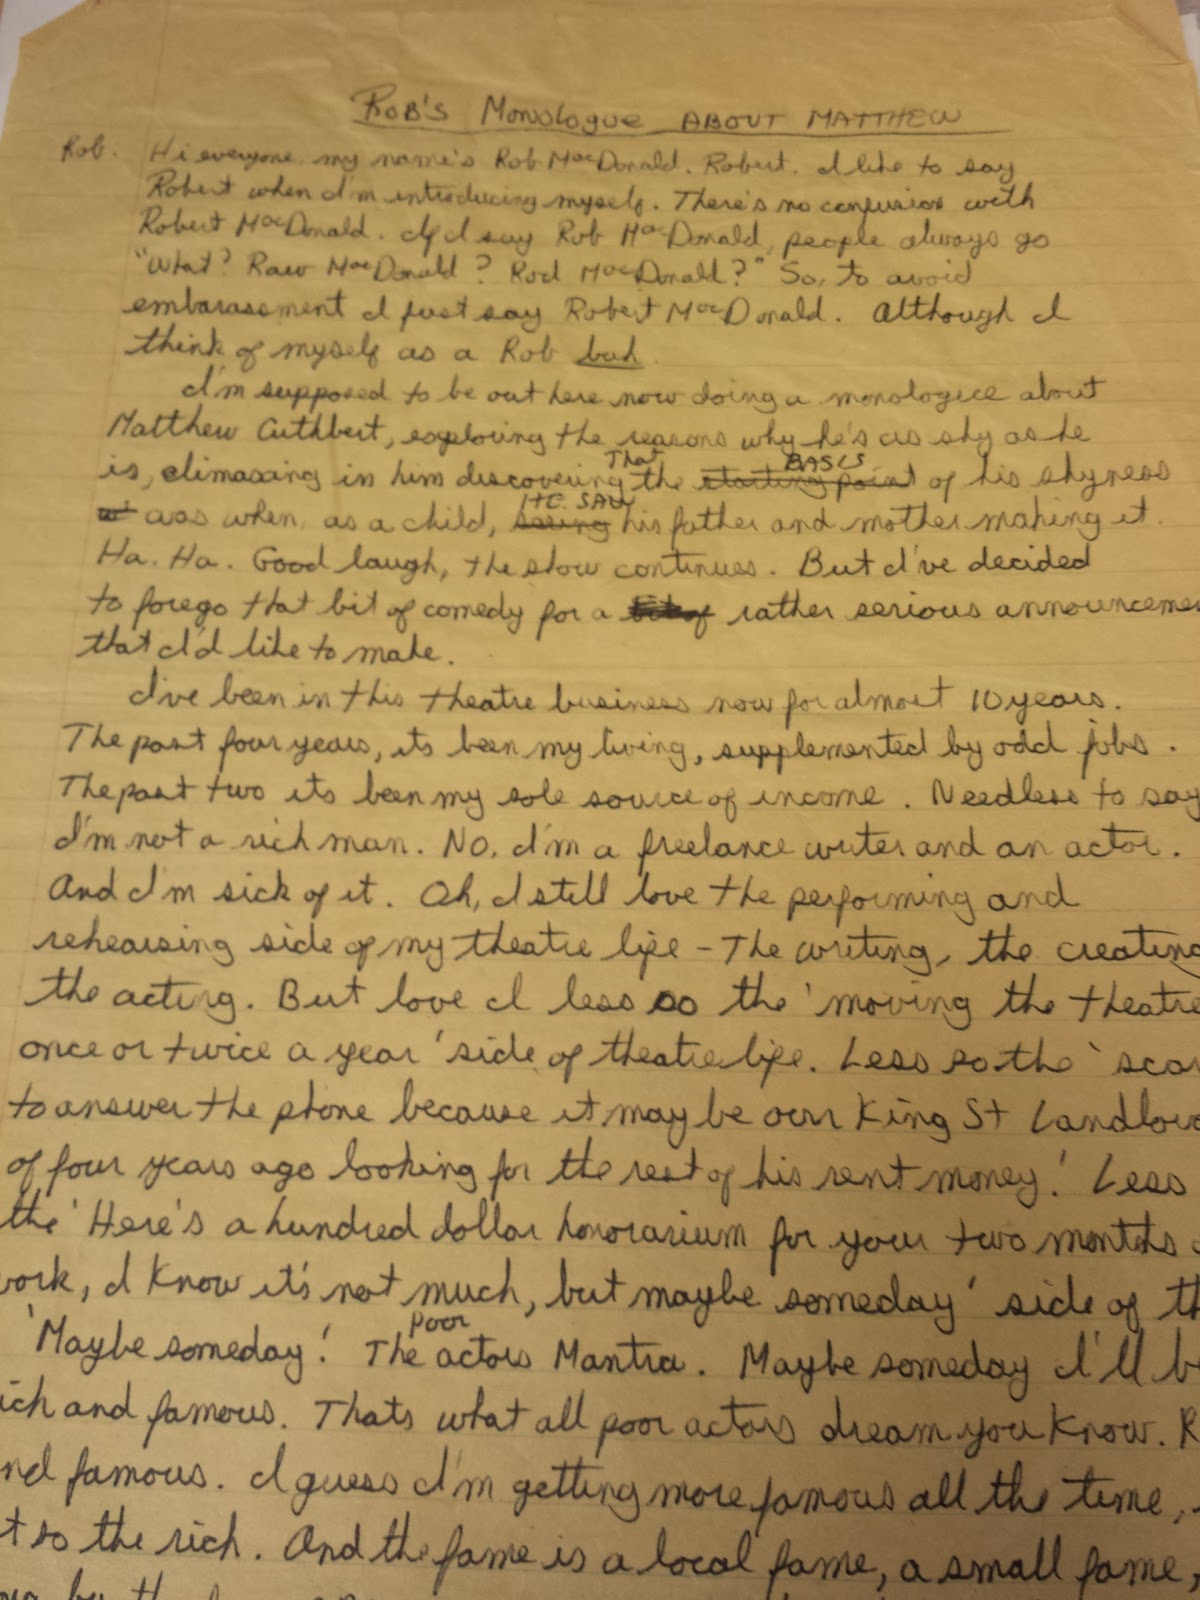 ROB'S Monologue ABOUT MATTHEW
Rob. Hi everyone my name's Rob MacDonald. Robert. I like to say
Robert when I'm introducing myself. There's no confusion with
Robert MacDonald. If I say Rob MacDonald, people always go
"What? Raw MacDonald? Rod MacDonald?" So, to avoid
embarassment I just say Robert MacDonald. Although I
think of myself as a Rob
I'm supposed to be out here now doing a monologue about
Matthew Cuthbert, exploring the reasons why he's as shy as he
is, climaxing in him discovering That the starting point BASIS of his shyness
was when, as a child, seeing HE SAW his father and mother making it.
Ha. Ha. Good laugh, the show continues. But I've decided
to forego that bit of comedy for a bit of rather serious announcemen
that I'd like to make.
I've been in this theatre business now for almost 10 years.
The past four years, its been my living, supplemented by odd jobs.
The past two its been my sole source of income. Needless to say
I'm not a rich man. No, I'm a freelance writer and an actor.
And I'm sick of it. Oh, I still love the performing and
rehearsing side of my theatre life - The writing, the creating
the acting. But love I less so the 'moving the theatre
once or twice a year' side of theatre life. Less so the 'scar
to answer the phone because it may be our King St Landlor
of four years ago looking for the rest of his rent money! Less
the 'Here's a hundred dollar honorarium for your two months
work, I know it's not much, but maybe someday' side of th
'Maybe someday! The Poor actors Mantra. Maybe someday I'll be
ich and famous. Thats what all poor actors dream you know. R
nd famous. I guess I'm getting more famous all the time,
t so the rich. And the fame is a local fame, a small fame,